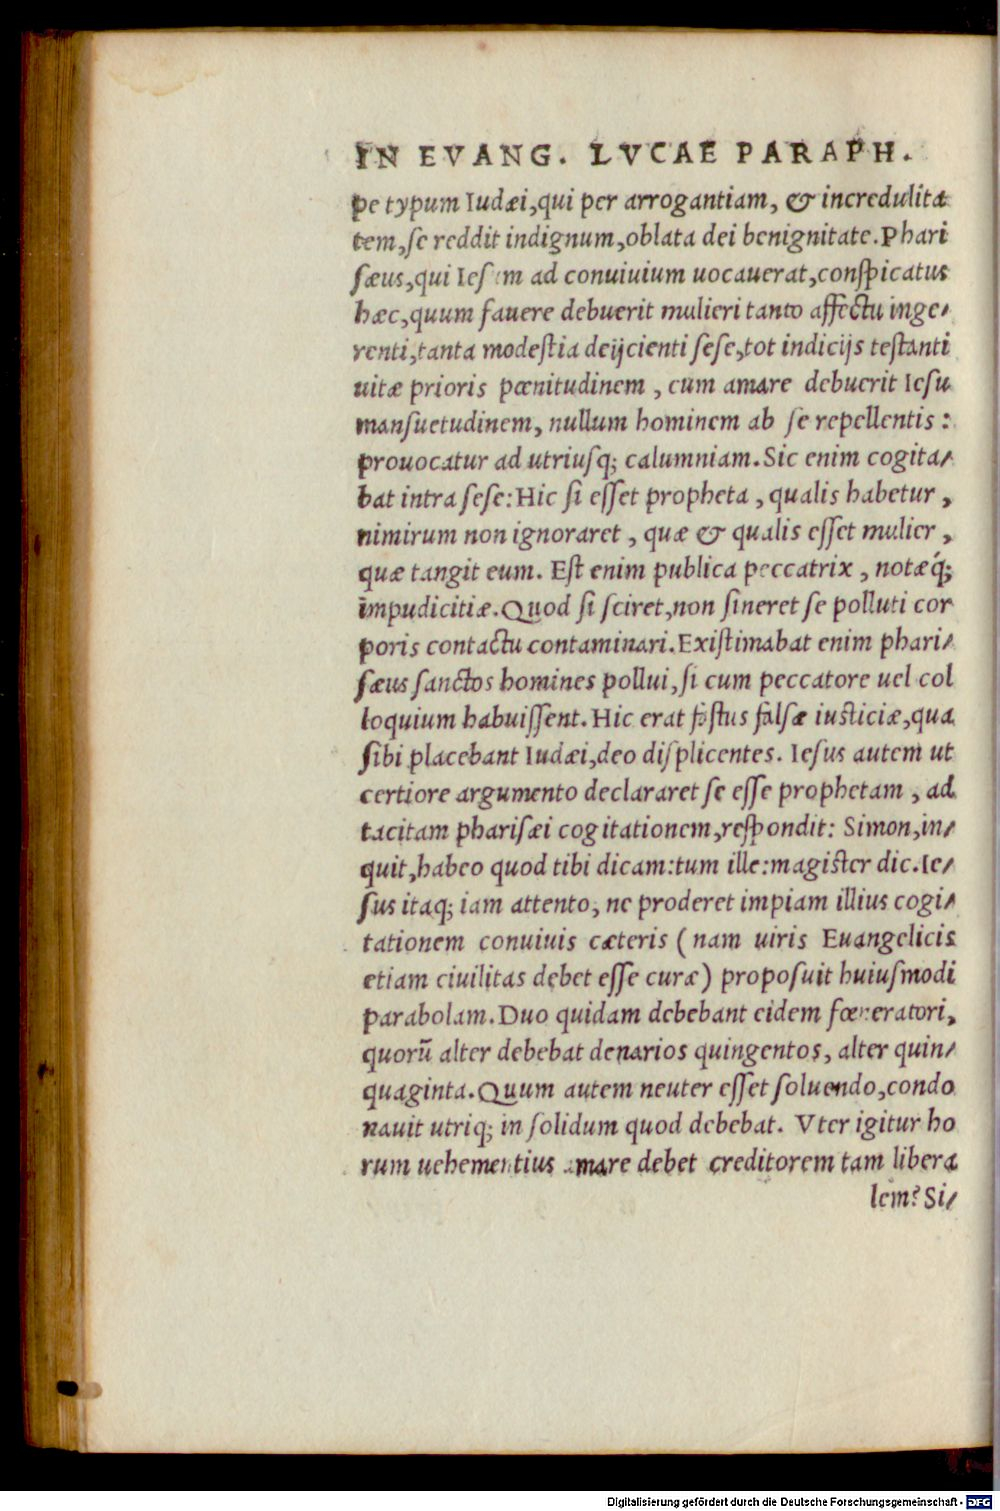 IN EVANG. LVCAE PARAPH.
pe typum Iudæi,qui per arrogantiam, & incredulita
tem,ſe reddit indignum,oblata dei benignitate.Phari
ſæus,qui Ieſum ad conuiuium uocauerat,conſpicatus
hæc,quum fauere debuerit mulieri tanto affectu inge⸗
renti,tanta modeſtia deijcienti ſeſe,tot indicijs teſtanti
uitæ prioris pœnitudinem , cum amare debuerit Ieſu
manſuetudinem, nullum hominem ab ſe repellentis :
prouocatur ad utriuſq; calumniam.Sic enim cogita⸗
bat intra ſeſe:Hic ſi eſſet propheta , qualis habetur ,
nimirum non ignoraret , quæ & qualis eſſet mulier ,
quæ tangit eum. Eſt enim publica peccatrix , notæq́;
impudicitiæ.Quod ſi ſciret,non ſineret ſe polluti cor
poris contactu contaminari.Exiſtimabat enim phari⸗
ſæus ſanctos homines pollui,ſi cum peccatore uel col
loquium habuiſſent.Hic erat faſtus falſæ iuſticiæ,qua
ſibi placebant Iudæi,deo diſplicentes. Ieſus autem ut
certiore argumento declararet ſe eſſe prophetam , ad
tacitam phariſæi cogitationem,reſpondit: Simon,in⸗
quit,habeo quod tibi dicam:tum ille:magiſter dic.Ie⸗
ſus itaq; iam attento, ne proderet impiam illius cogi⸗
tationem conuiuis cæteris (nam uiris Euangelicis
etiam ciuilitas debet eſſe curæ) propoſuit huiuſmodi
parabolam.Duo quidam debebant eidem fœneratori,
quorū alter debebat denarios quingentos, alter quin⸗
quaginta.Quum autem neuter eſſet ſoluendo,condo
nauit utriq; in ſolidum quod debebat. Vter igitur ho
rum uehementius amare debet creditorem tam libera
lem? Si⸗
Digitalisierung gefördert durch die Deutsche Forschungsgemeinschaft - DFG